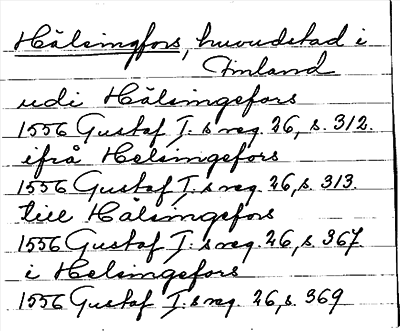 Hälsingfors, huvudstad i
Finland
udi Hälsingefors
1556 Gustaf I:s reg. 26, s. 312.
ifrå Helsingefors
1556 Gustaf I:s reg. 26, s. 313.
till Hälsingefors
1556 Gustaf I:s reg. 26, s. 367
i Helsingefors
1556 Gustaf I:s reg. 26, s. 369